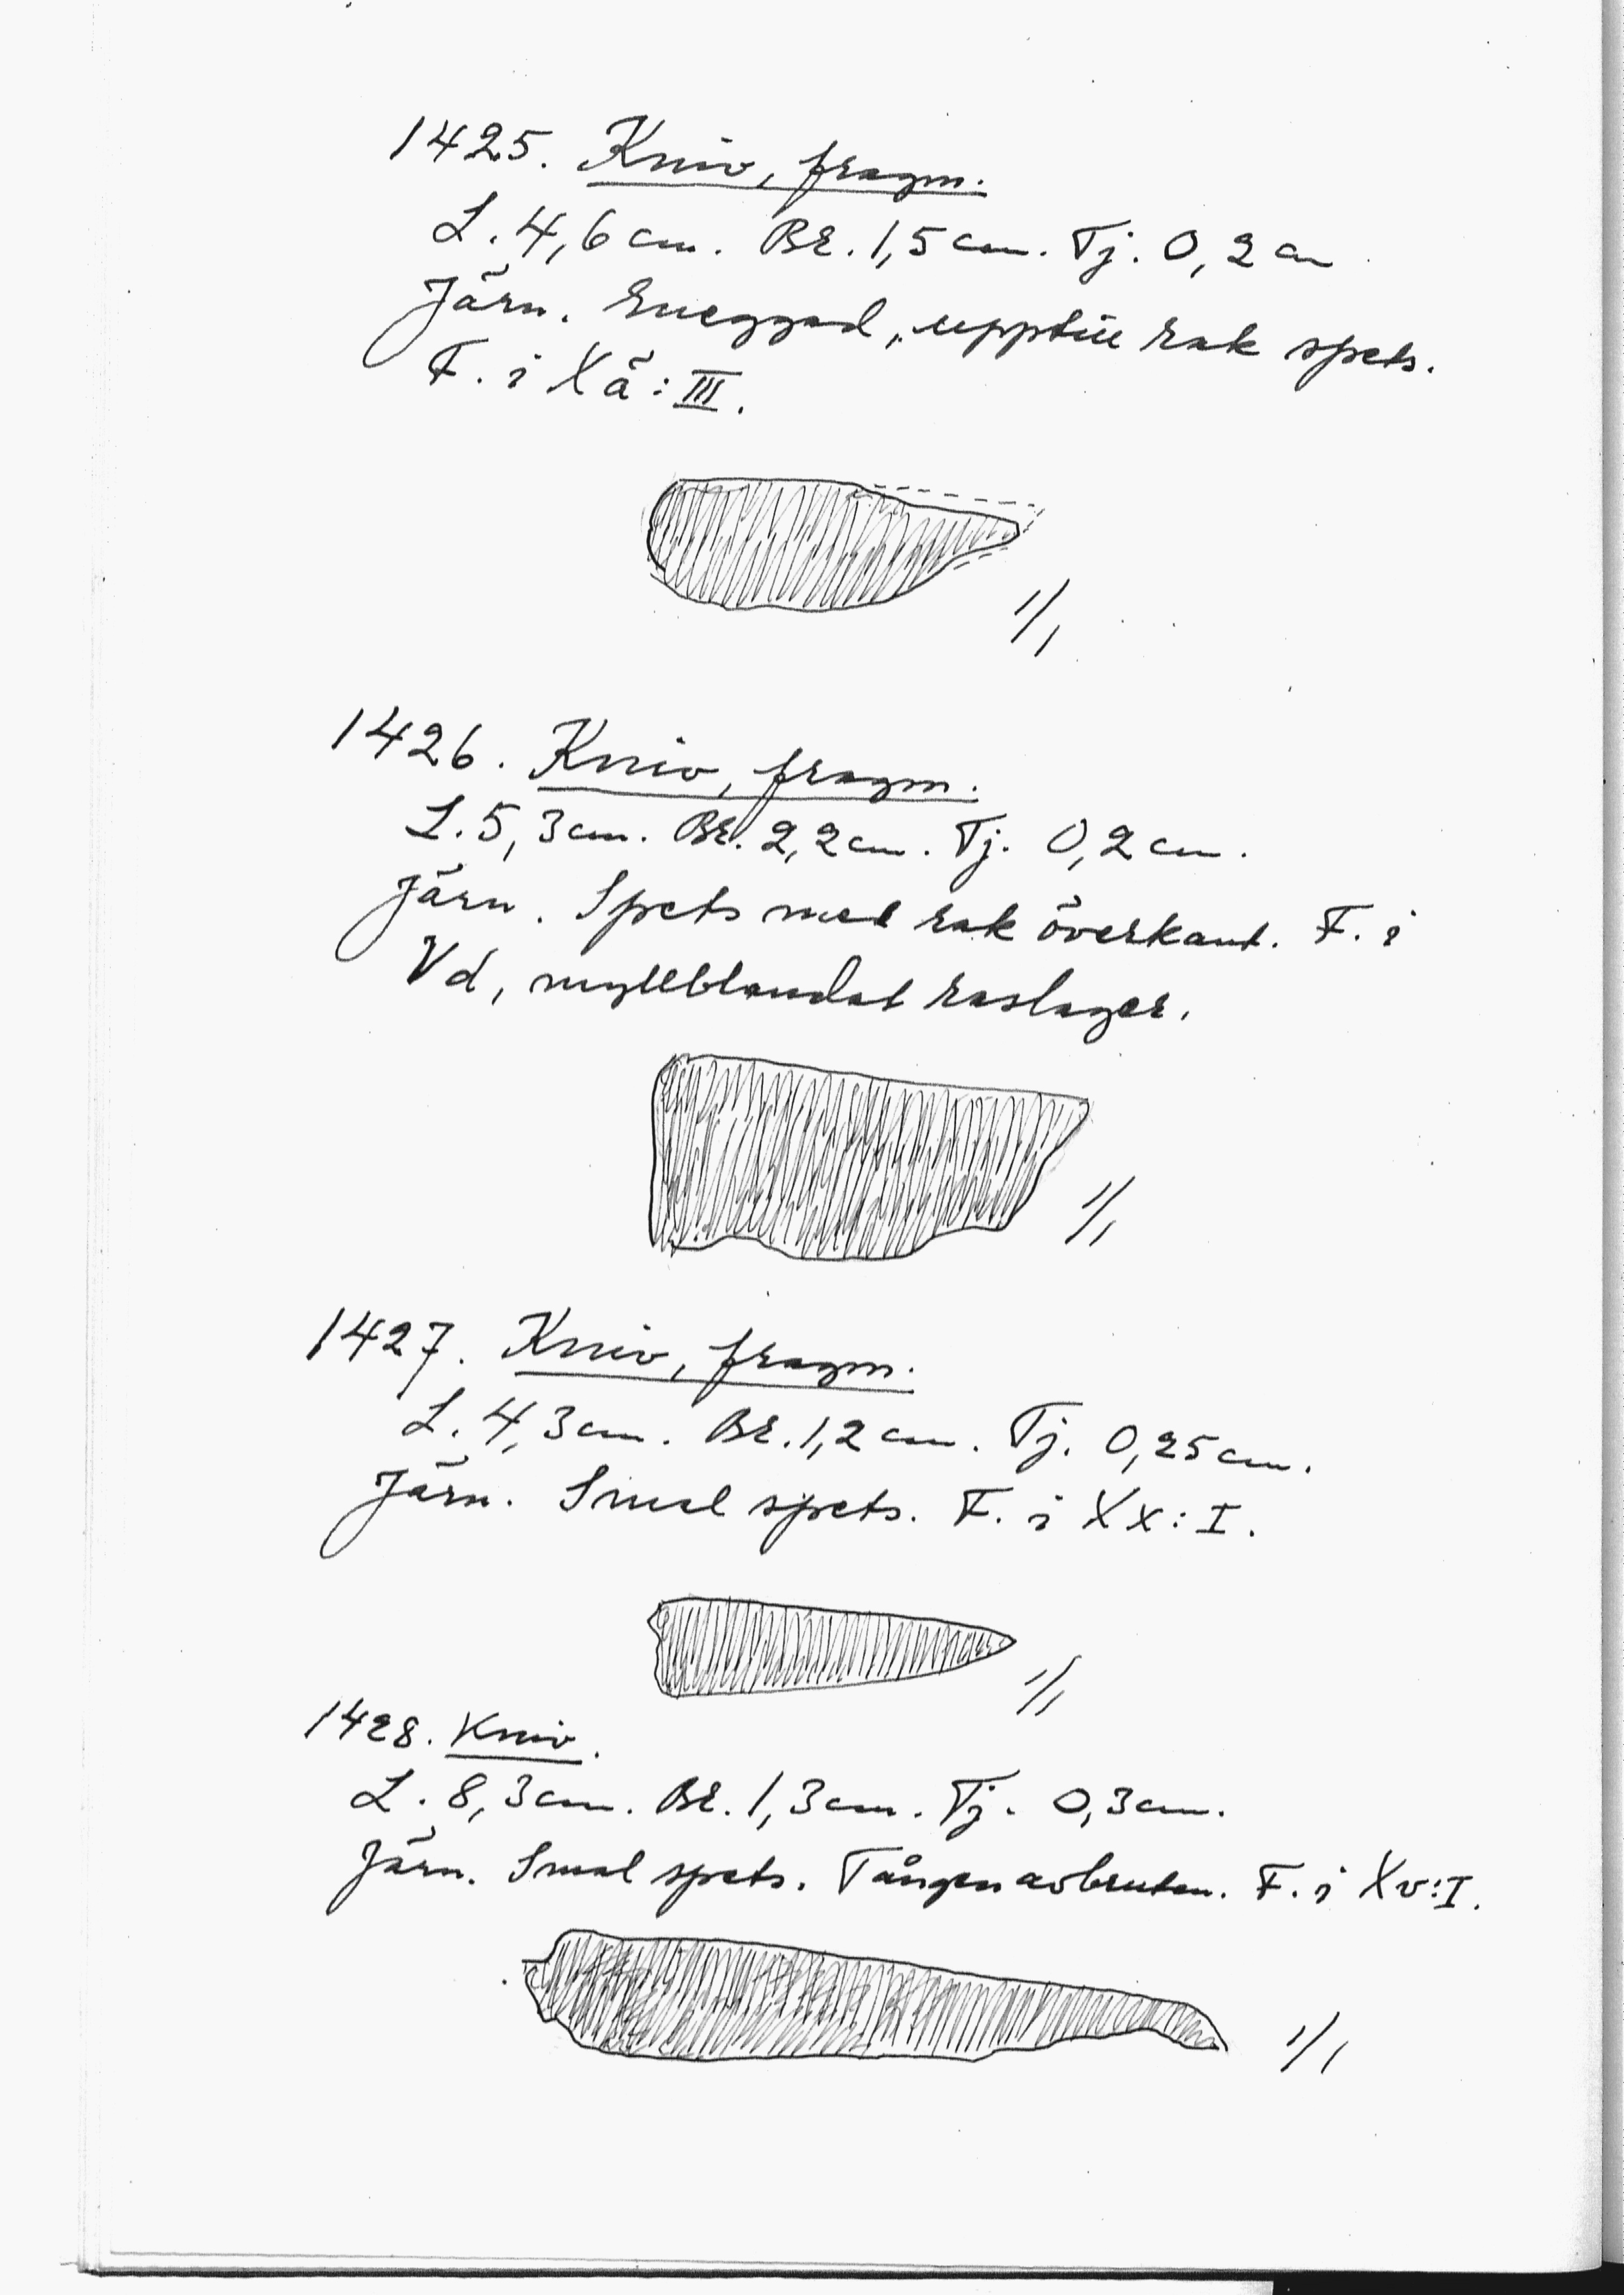 1425. Kniv, fragm.
L. 4,6 cm. Br. 1,5 cm. Tj. 0,2 cm
Järn. Eneggad, upptill rak spets.
F. i Xä: III.
1/1
1426. Kniv, fragm.
L. 5,3 cm. Br. 2,2 cm. Tj. 0,2 cm.
Järn. Spets med rak överkant. F. i
Vd, myllblandat raslager.
1/1
1427. Kniv, fragm.
L. 4,3 cm. Br. 1,2 cm. Tj. 0,25 cm.
Järn. Smal spets. F. i Xx: I.
1/1
1428. Kniv.
L. 8,3 cm. Br. 1,3 cm. Tj. 0,3 cm.
Järn. Smal spets. Tången avbruten. F. i Xv: I.
1/1